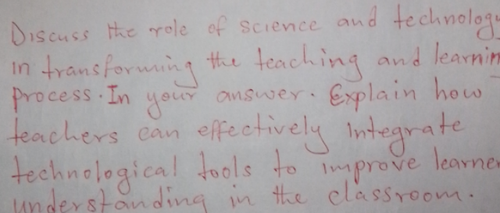 Discuss the role of science and technology
in transforming the teaching and learnin
process. In your answer. Explain how
teachers can effectively Integrate
technological tools to improve learne
understanding in the classroom.